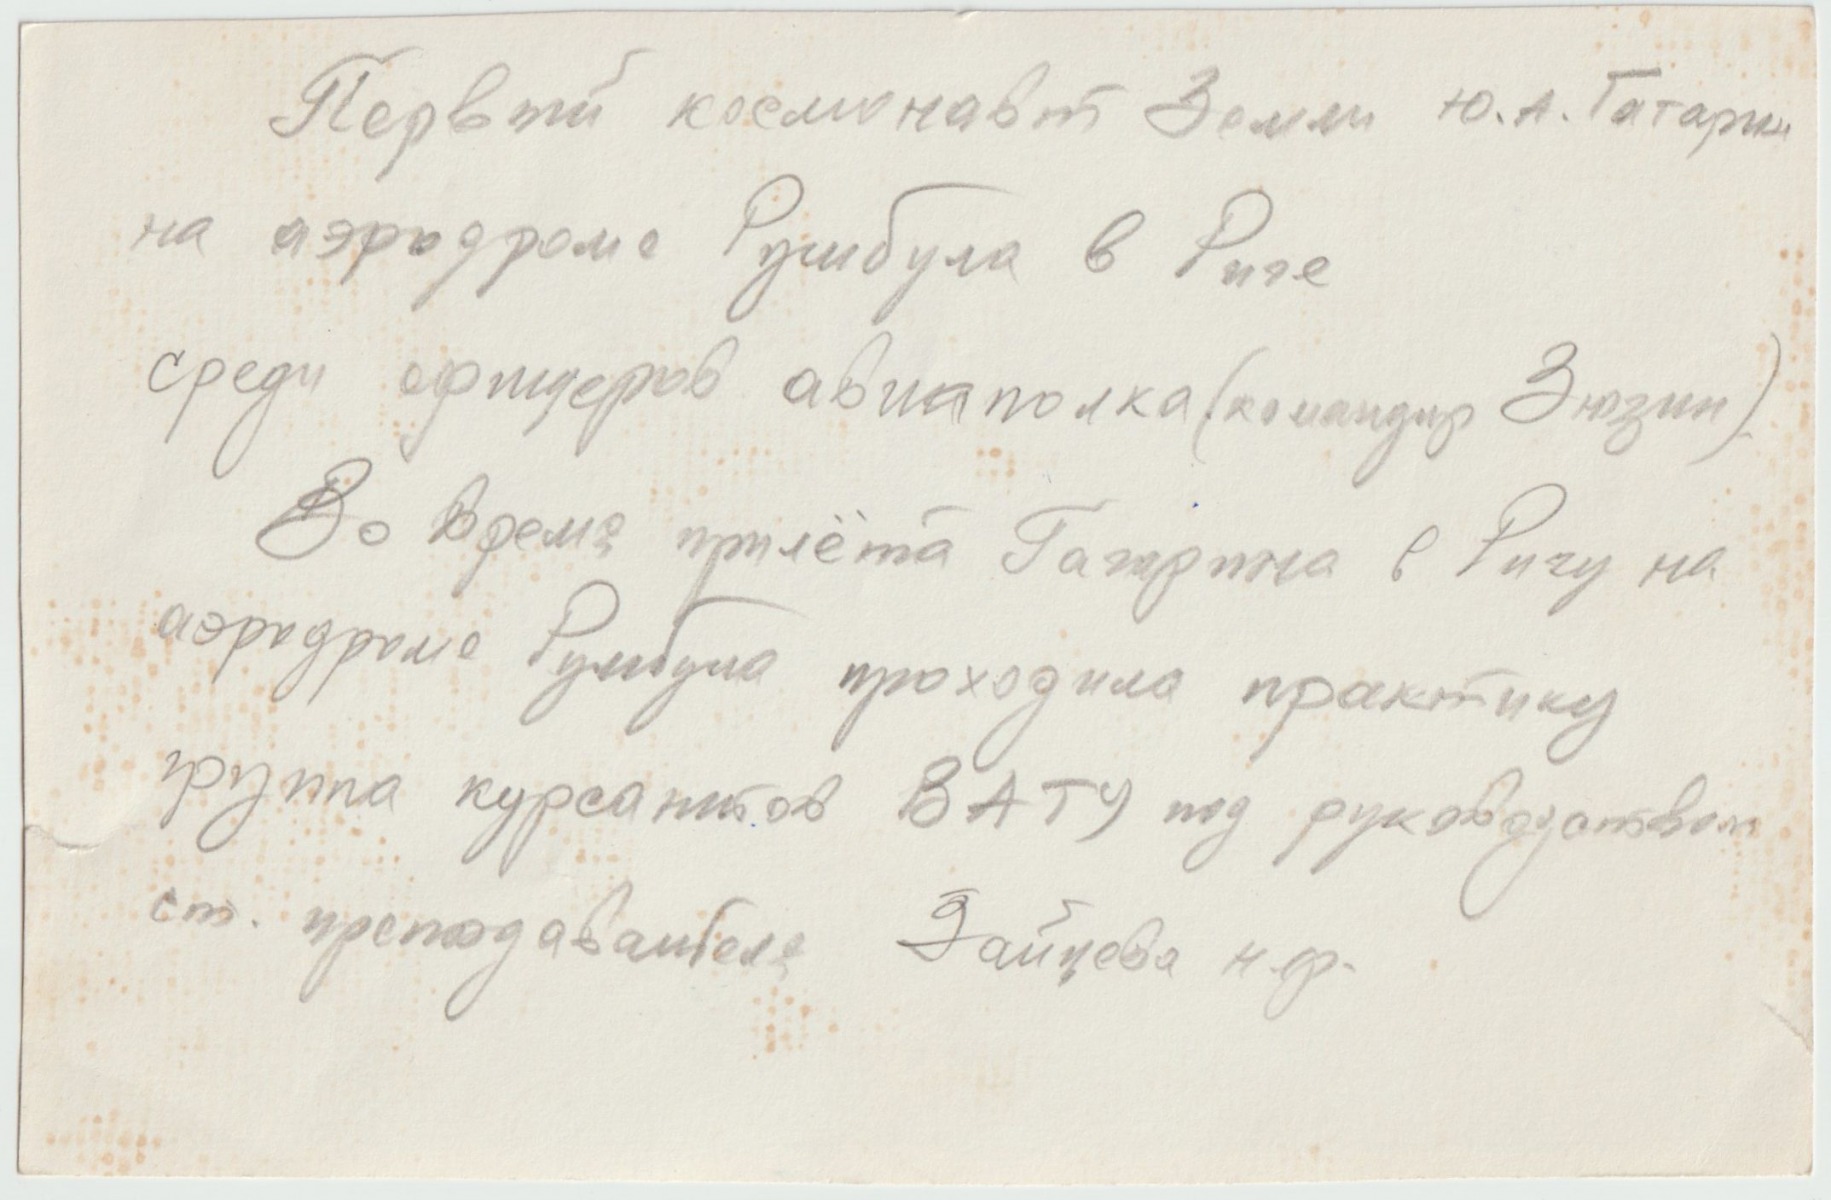 Первый космонавт Земли Ю.А. Гагарин
на аэродроме Румбула в Риге
среди офицеров авиаполка (командир Зюзин)
Во время прилёта Гагарина в Ригу на
аэродроме Румбула проходила практику
группа курсантов ВАТУ под руководством
ст. преподавателя Зайцева Н.Ф.